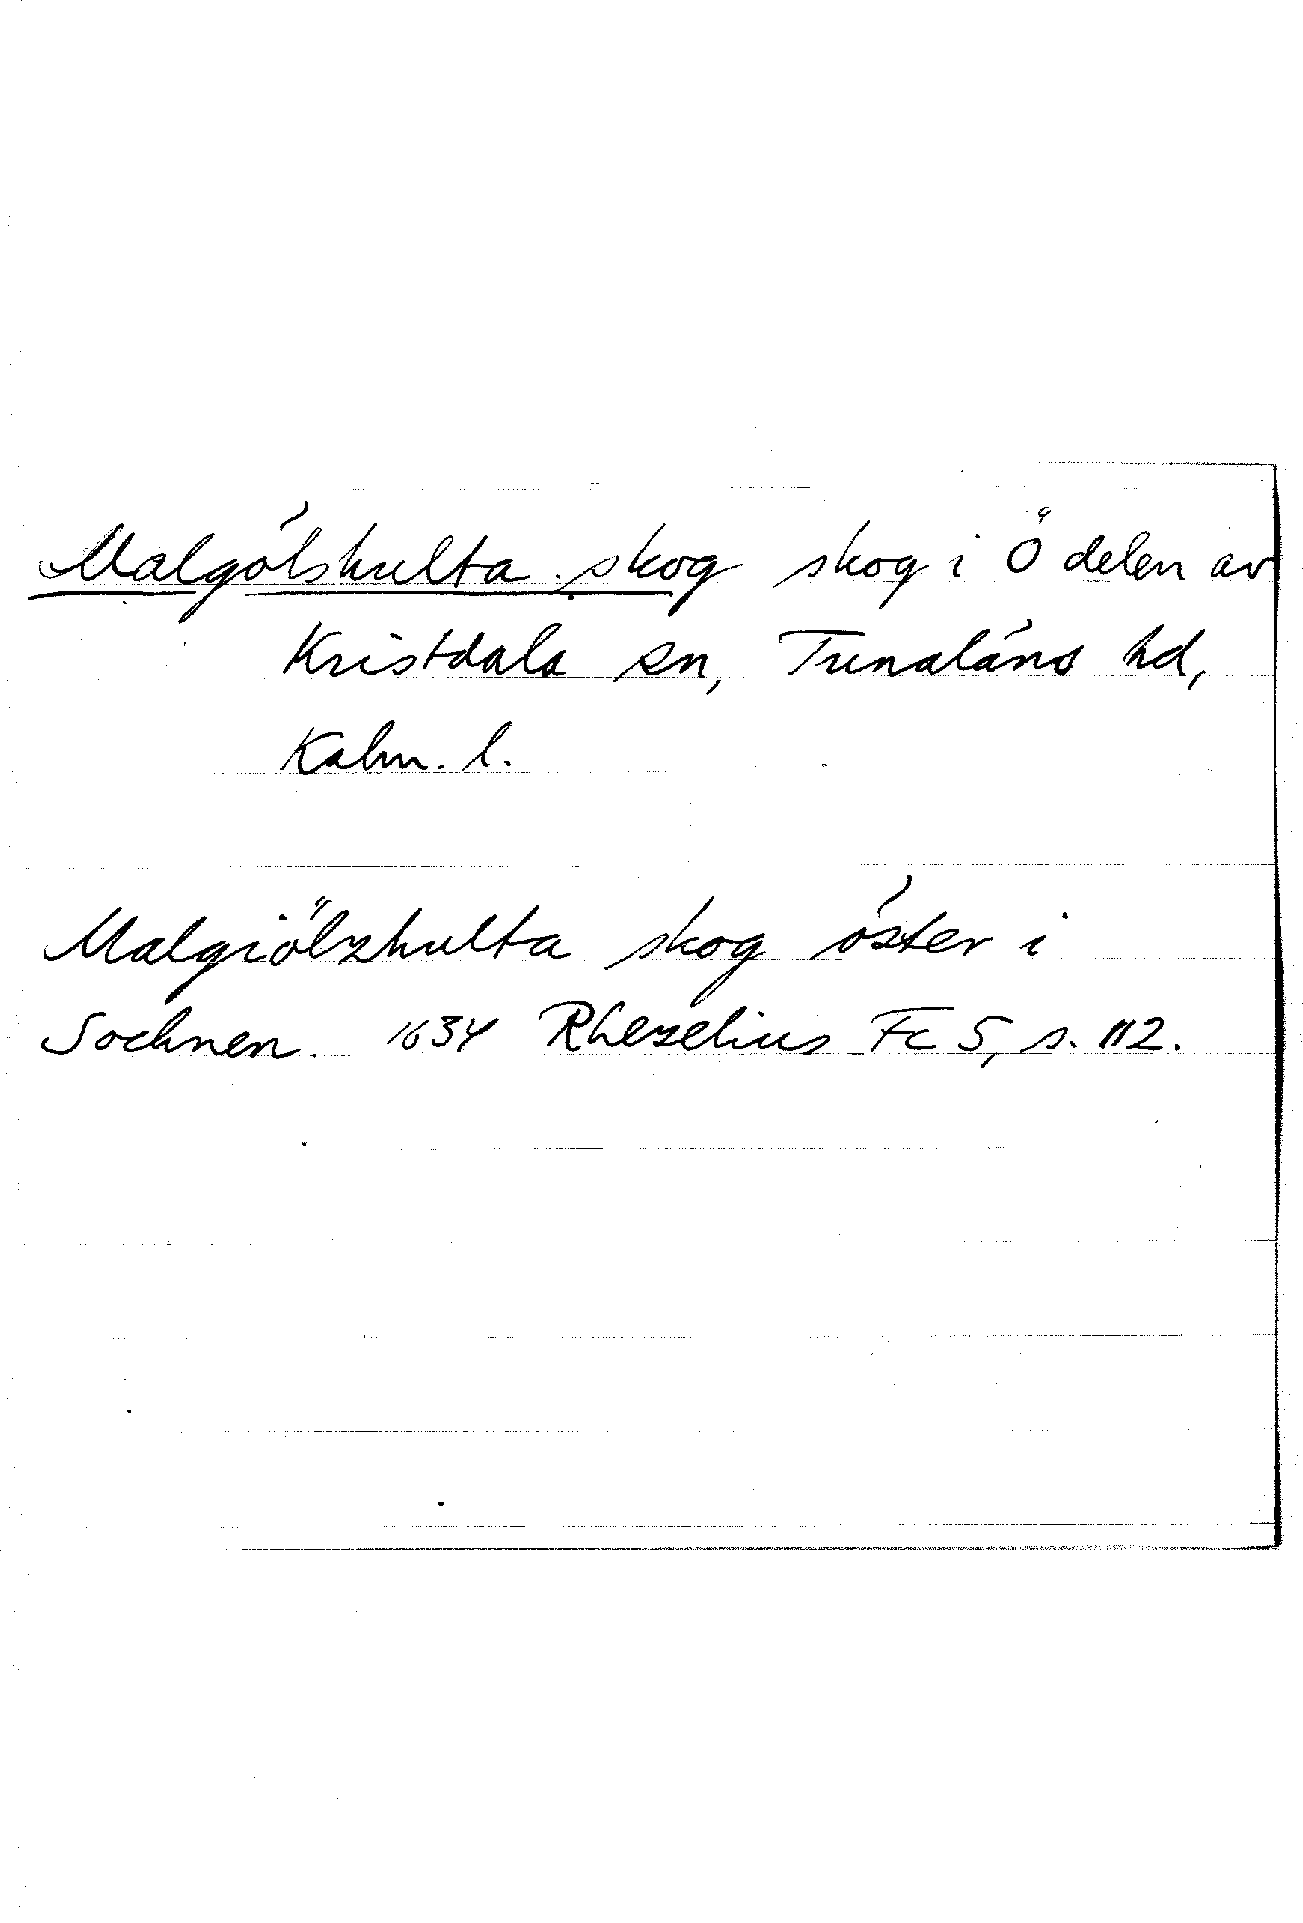 Malgölshulta skog skog i Ö delen av
Kristdala sn, Tunaläns hd,
Kalm. l.
Malgiölzhulta skog öster i
Sochnen. 1634 Rhezelius Fc 5, s. 112.